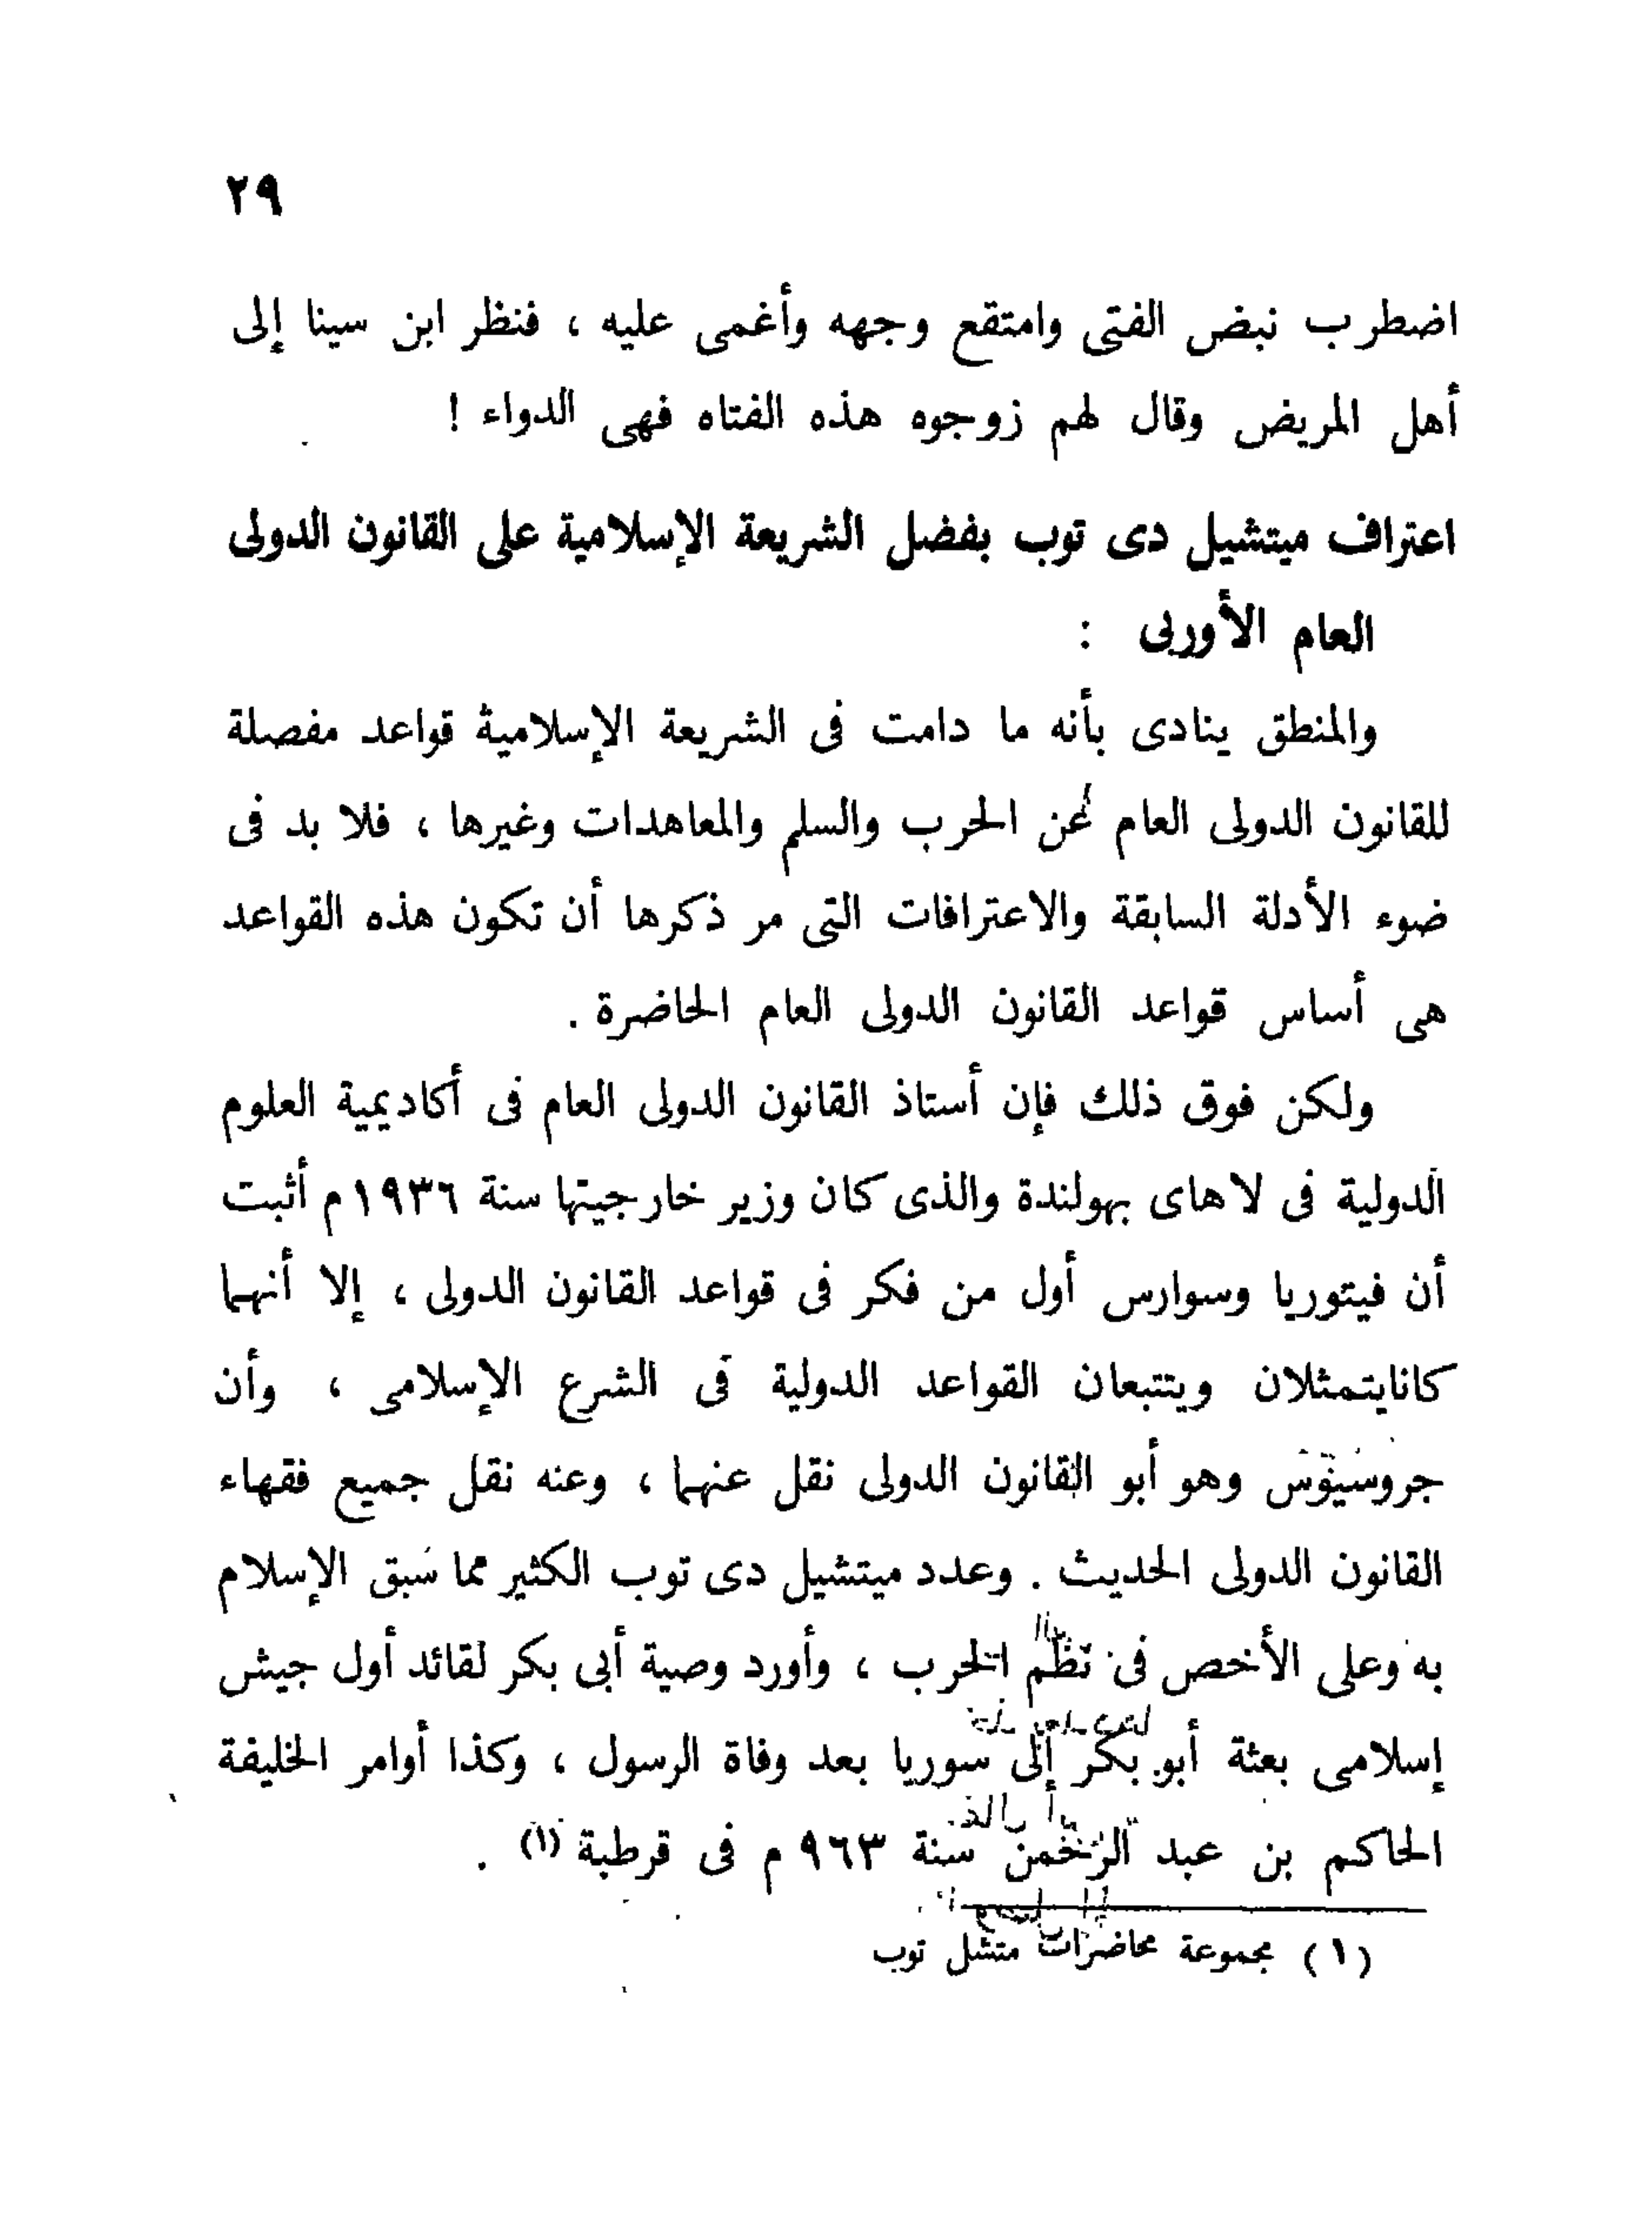 ٢٩
اضطرب نبض الفتى وامتقع وجهه وأغمى عليه ، فنظر ابن سينا إلى
أهل المريض وقال لهم زوجوه هذه الفتاه فهى الدواء !
اعتراف ميتشيل دى توب بفضل الشريعة الإسلامية على القانون الدولى
العام الأوربى :
والمنطق ينادى بأنه ما دامت فى الشريعة الإسلامية قواعد مفصلة
للقانون الدولى العام عن الحرب والسلم والمعاهدات وغيرها ، فلا بد فى
ضوء الأدلة السابقة والاعترافات التى مر ذكرها أن تكون هذه القواعد
هى أساس قواعد القانون الدولى العام الحاضرة .
ولكن فوق ذلك فإن أستاذ القانون الدولى العام فى أكاديمية العلوم
الدولية فى لاهاى بهولندة والذى كان وزير خارجيتها سنة ١٩٣٦ م أثبت
أن فيتوريا وسوارس أول من فكر فى قواعد القانون الدولى ، إلا أنهما
كانايتمثلان ويتتبعان القواعد الدولية فى الشرع الإسلامى ، وأن
جروسيوس وهو أبو القانون الدولى نقل عنهما ، وعنه نقل جميع فقهاء
القانون الدولى الحديث . وعدد ميتشيل دى توب الكثير مما سبق الإسلام
به وعلى الأخص فى نظم الحرب ، وأورد وصية أبى بكر لقائد أول جيش
إسلامى بعثة أبو بكر إلى سوريا بعد وفاة الرسول ، وكذا أوامر الخليفة
الحاكم بن عبد الرحمن سنة ٩٦٣ م فى قرطبة (١) .
(١) مجموعة محاضرات متشل توب